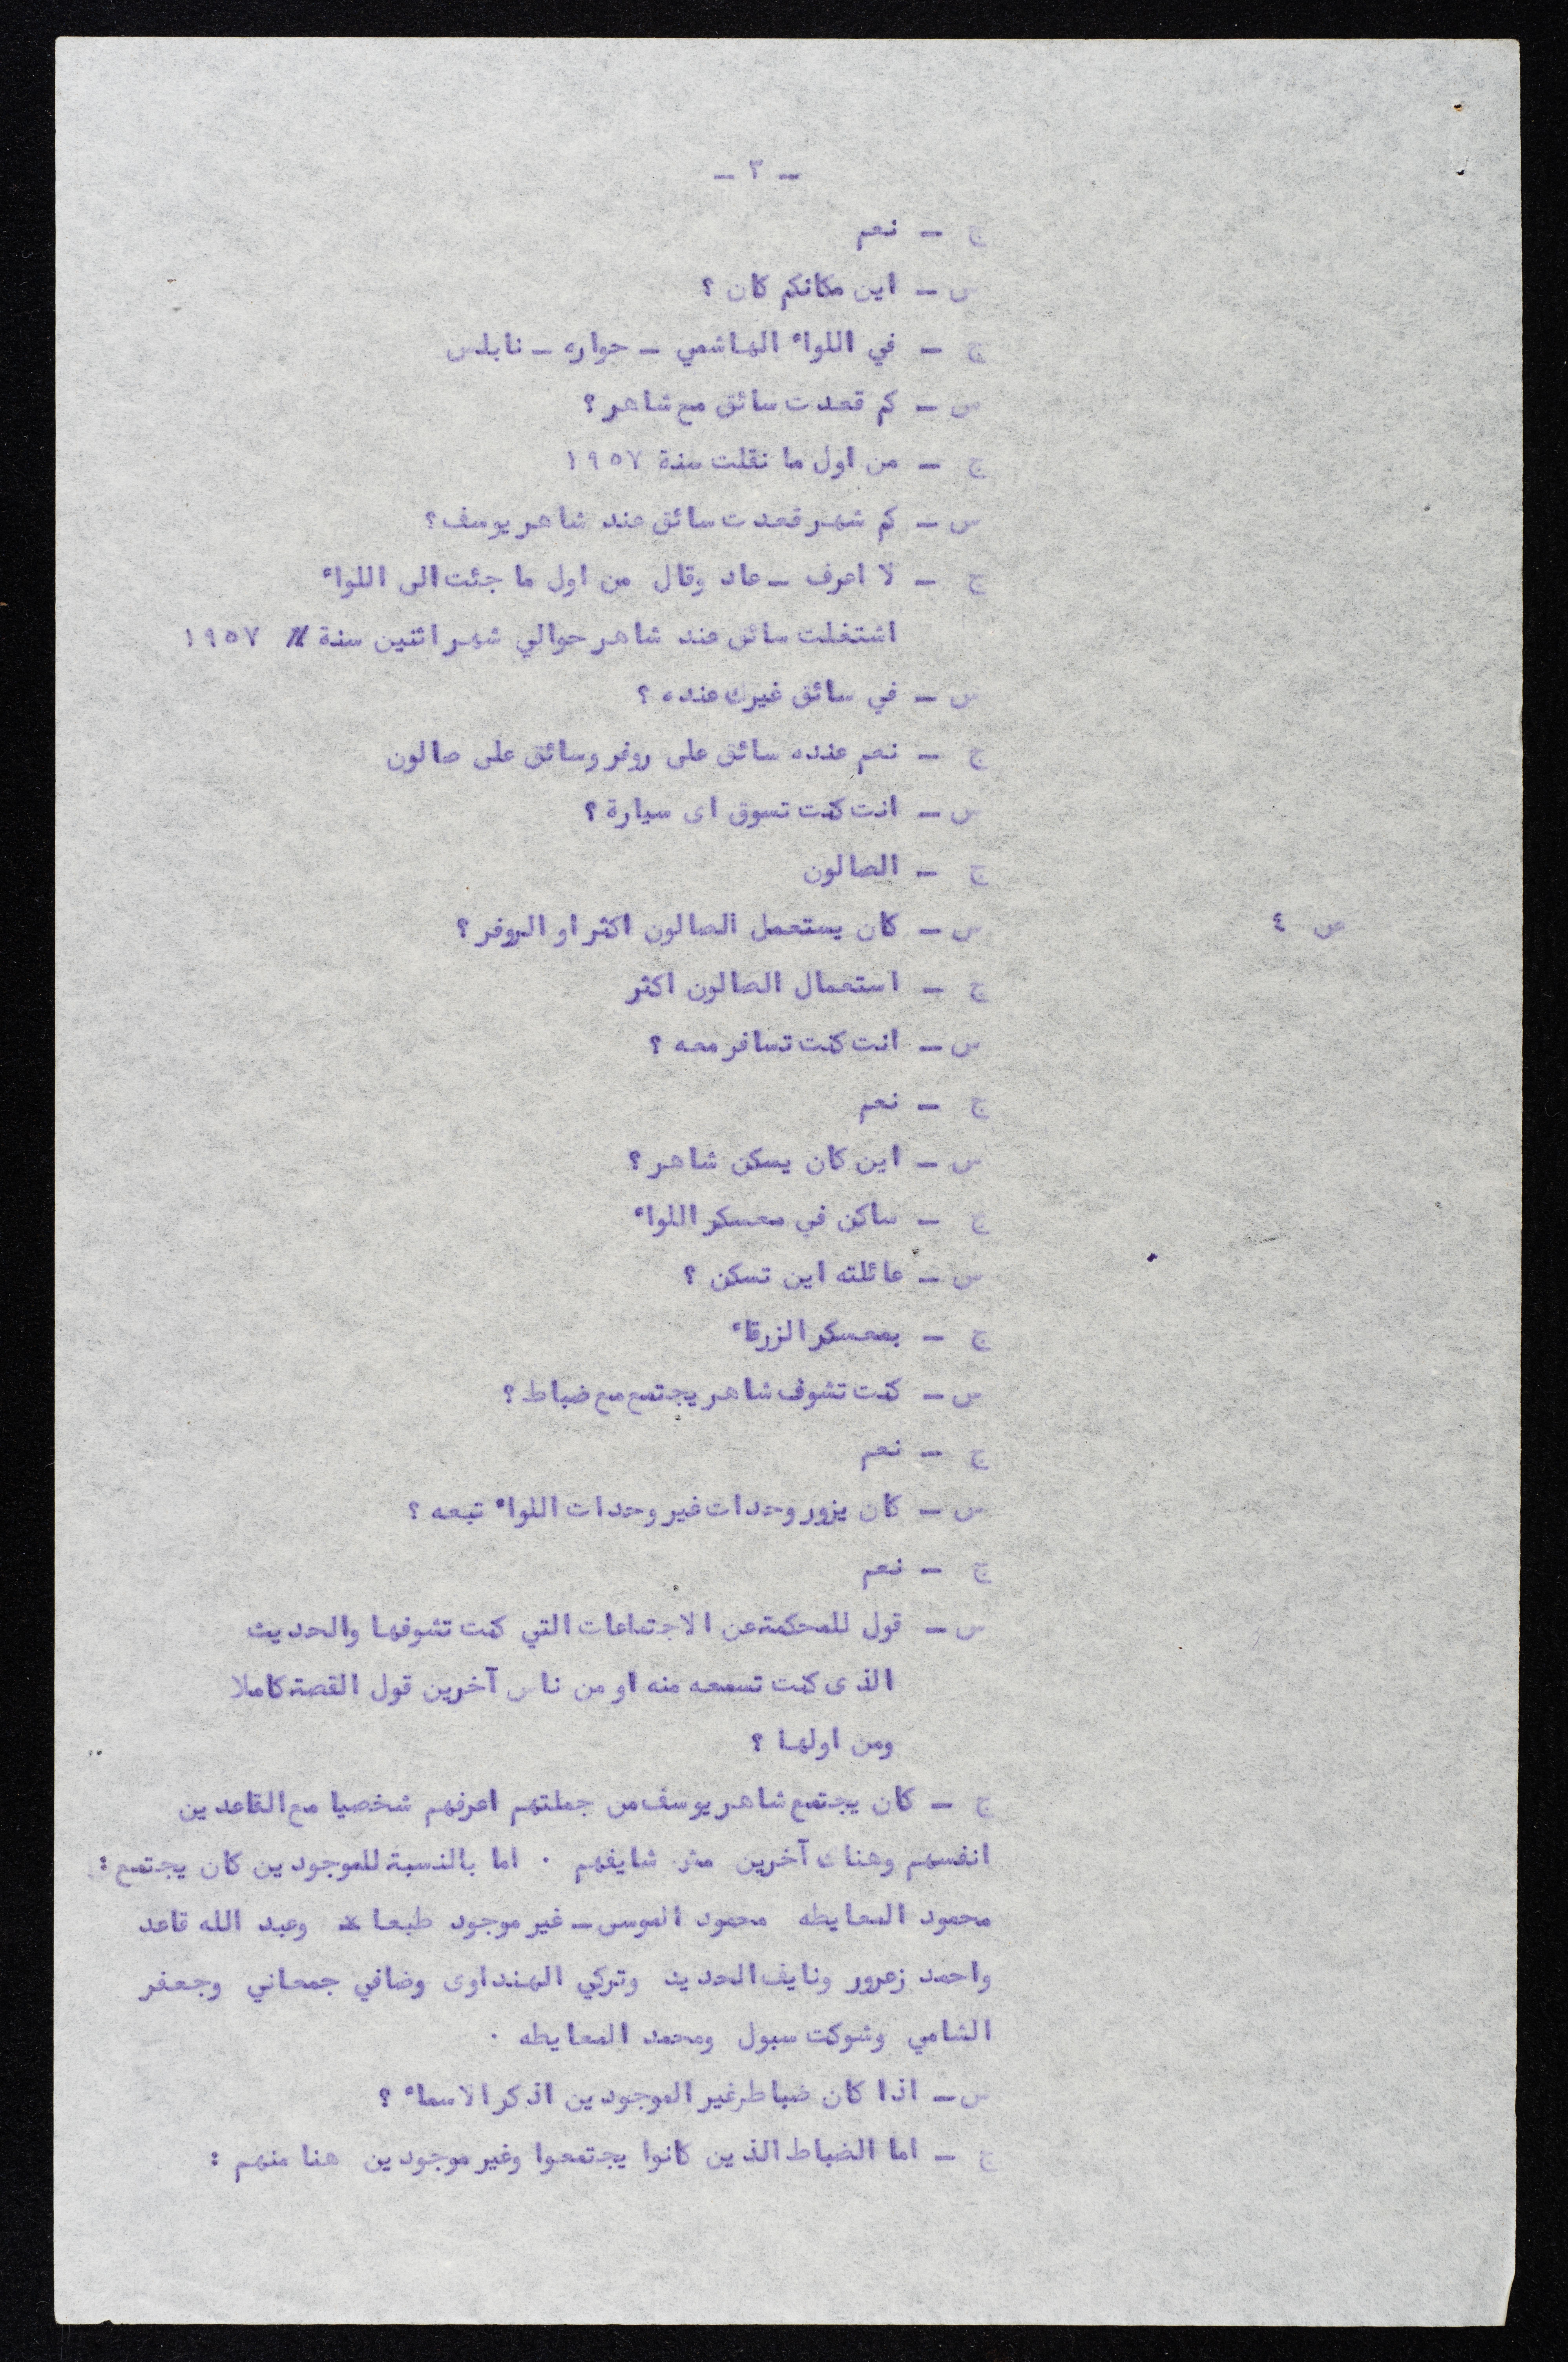 - ٣ -
ج - نعم
س - اين مكانكم كان ؟
ج - في اللواء الهاشمي - حواره - نابلس
س - كم قعدت سائق مع شاهر ؟
ج - من اول ما نقلت سنة ١٩٥٧
س - كم شهر قعدت سائق عند شاهر يوسف ؟
ج - لا اعرف - عاد وقال من اول ما جئت الى اللواء
اشتغلت سائق عند شاهر حوالي شهر اثنين سنة ١٩٥٧
س - في سائق غيرك عنده ؟
ج - نعم عنده سائق على روفر وسائق على صالون
س - انت كنت تسوق اى سيارة ؟
ج - الصالون
ص ٤ س - كان يستعمل الصالون اكثر او الروفر ؟
ج - استعمال الصالون اكثر
س - انت كنت تسافر معه ؟
ج - نعم
س - اين كان يسكن شاهر ؟
ج - ساكن في معسكر اللواء
س - عائلته اين تسكن ؟
ج - بمعسكر الزرقاء
س - كنت تشوف شاهر يجتمع مع ضباط ؟
ج - نعم
س - كان يزور وحدات غير وحدات اللواء تبعه ؟
ج - نعم
س - قول للمحكمة عن الاجتماعات التي كنت تشوفها والحديث
الذى كنت تسمعه منه او من ناس آخرين قول القصة كاملا
ومن اولها ؟
ج - كان يجتمع شاهر يوسف من جملتهم اعرفهم شخصيا مع القاعدين
انفسهم وهناك آخرين مش شايفهم . اما بالنسبة للموجودين كان يجتمع :
محمود المعايطه محمود الموسى - غير موجود طبعا - وعبد الله قاعد
واحمد زعرور ونايف الحديد وتركي الهنداوى وضافي جمعاني وجعفر
الشامي وشوكت سبول ومحمد المعايطه .
س - اذا كان ضباط غير الموجودين اذكر الاسماء ؟
ج - اما الضباط الذين كانوا يجتمعوا وغير موجودين هنا منهم :